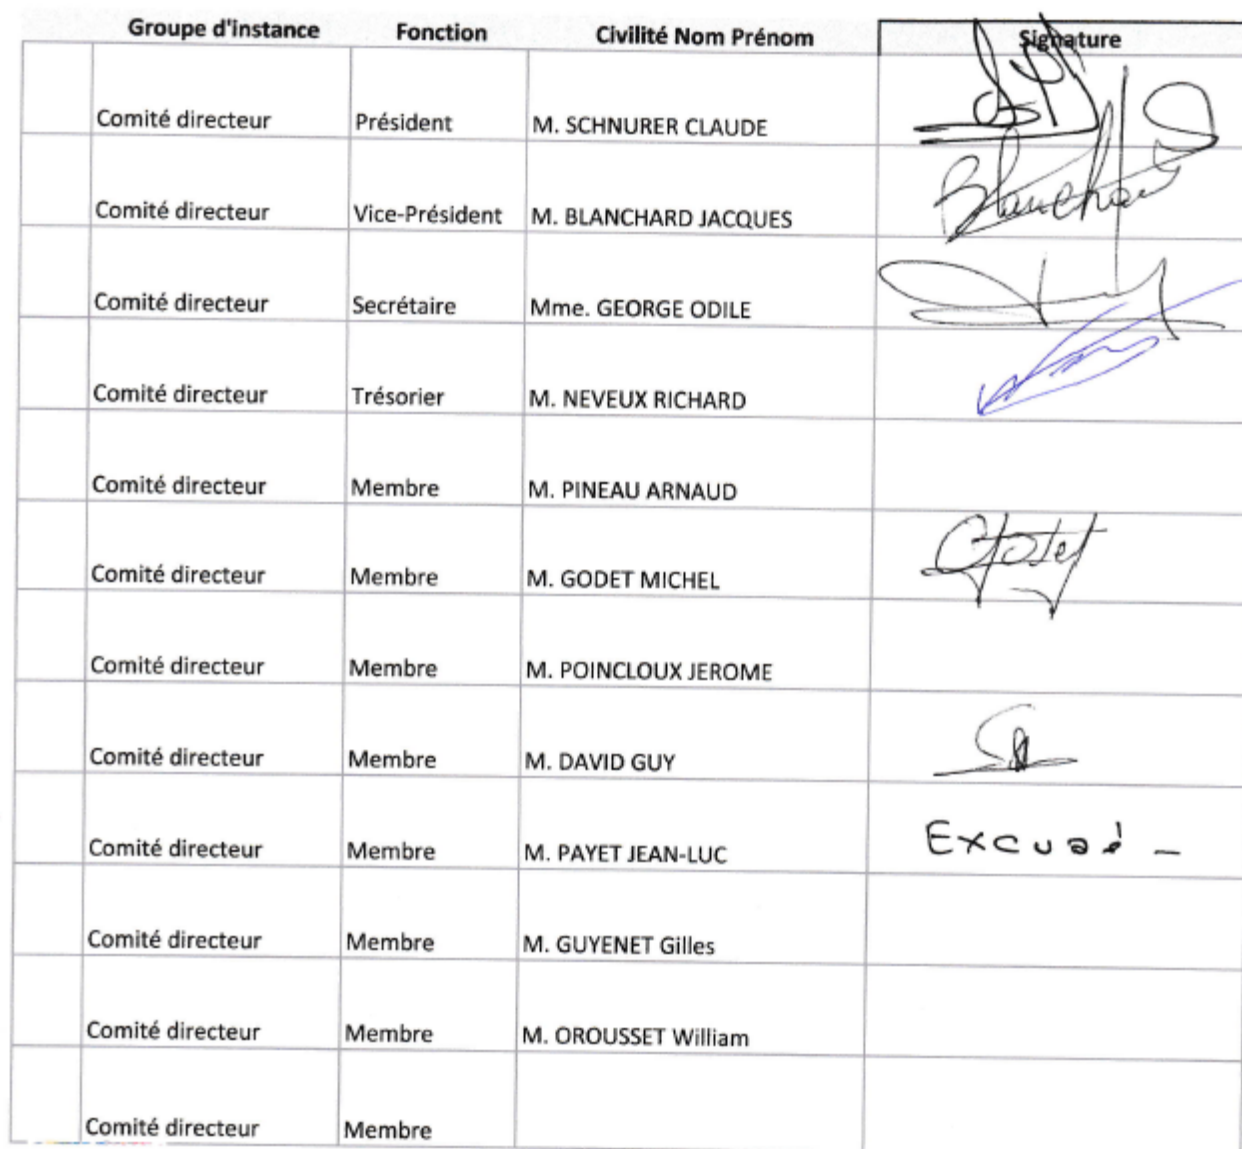 Groupe d'Instance Fonction Civilité Nom Prénom Signature
Comité directeur Président M. SCHNURER CLAUDE
Comité directeur Vice-Président M. BLANCHARD JACQUES Blanchard
Comité directeur Secrétaire Mme. GEORGE ODILE
Comité directeur Trésorier M. NEVEUX RICHARD
Comité directeur Membre M. PINEAU ARNAUD
Comité directeur Membre M. GODET MICHEL Godet
Comité directeur Membre M. POINCLOUX JEROME
Comité directeur Membre M. DAVID GUY
Comité directeur Membre M. PAYET JEAN-LUC Excusé -
Comité directeur Membre M. GUYENET Gilles
Comité directeur Membre M. OROUSSET William
Comité directeur Membre